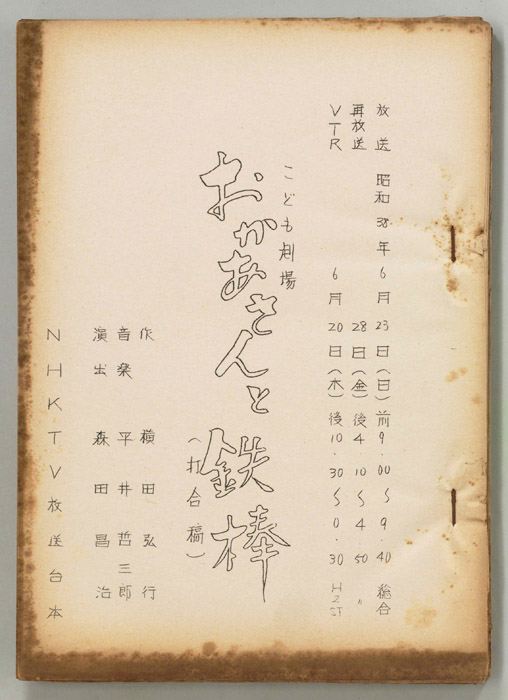 放送 昭和38年6月23日(日)前9.00〜9.40 総合
再放送 28日(金)後4.10〜4.50 〃
VTR 6月20日(木)後10.30〜0.30 H2ST
こども劇場
おかあさんと鉄棒
(打合稿)
作 横田弘行
音楽 平井哲三郎
演出 森田昌治
NHKTV放送台本